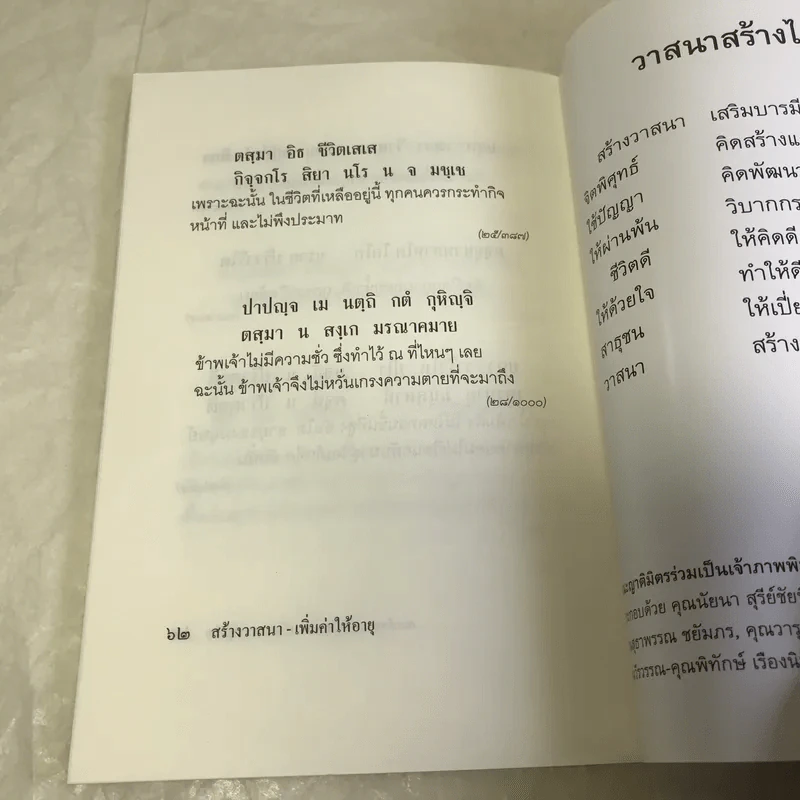 ตสฺมา อิธ ชีวิตเสเส
กิจฺจกโร สิยา นโร น จ มชฺเช
เพราะฉะนั้น ในชีวิตที่เหลืออยู่นี้ ทุกคนควรกระทำกิจ
หน้าที่ และไม่พึงประมาท
(๒๕/๓๘๗)
ปาปญฺจ เม นตฺถิ กตํ กุหิญฺจิ
ตสฺมา น สงฺเก มรณาคมาย
ข้าพเจ้าไม่มีความชั่ว ซึ่งทำไว้ ณ ที่ไหนๆ เลย
ฉะนั้น ข้าพเจ้าจึงไม่หวั่นเกรงความตายที่จะมาถึง
(๒๘/๑๐๐๐)
๖๒ สร้างวาสนา - เพิ่มค่าให้อายุ
วาสนาสร้างไ
สร้างวาสนา เสริมบารมี
จิตพิศุทธิ์ คิดสร้างแ
ใช้ปัญญา คิดพัฒนา
ให้ผ่านพ้น วิบากกร
ชีวิตดี ให้คิดดี
ให้ด้วยใจ ทำให้ดี
สาธุชน ให้เปี่ย
วาสนา สร้าง
ญาติมิตรร่วมเป็นเจ้าภาพพิ
กอบด้วย คุณนัยนา สุรีย์ชัย
สุธาพรรณ ชยัมภร, คุณวารุ
วรรณ-คุณพิทักษ์ เรืองนิ